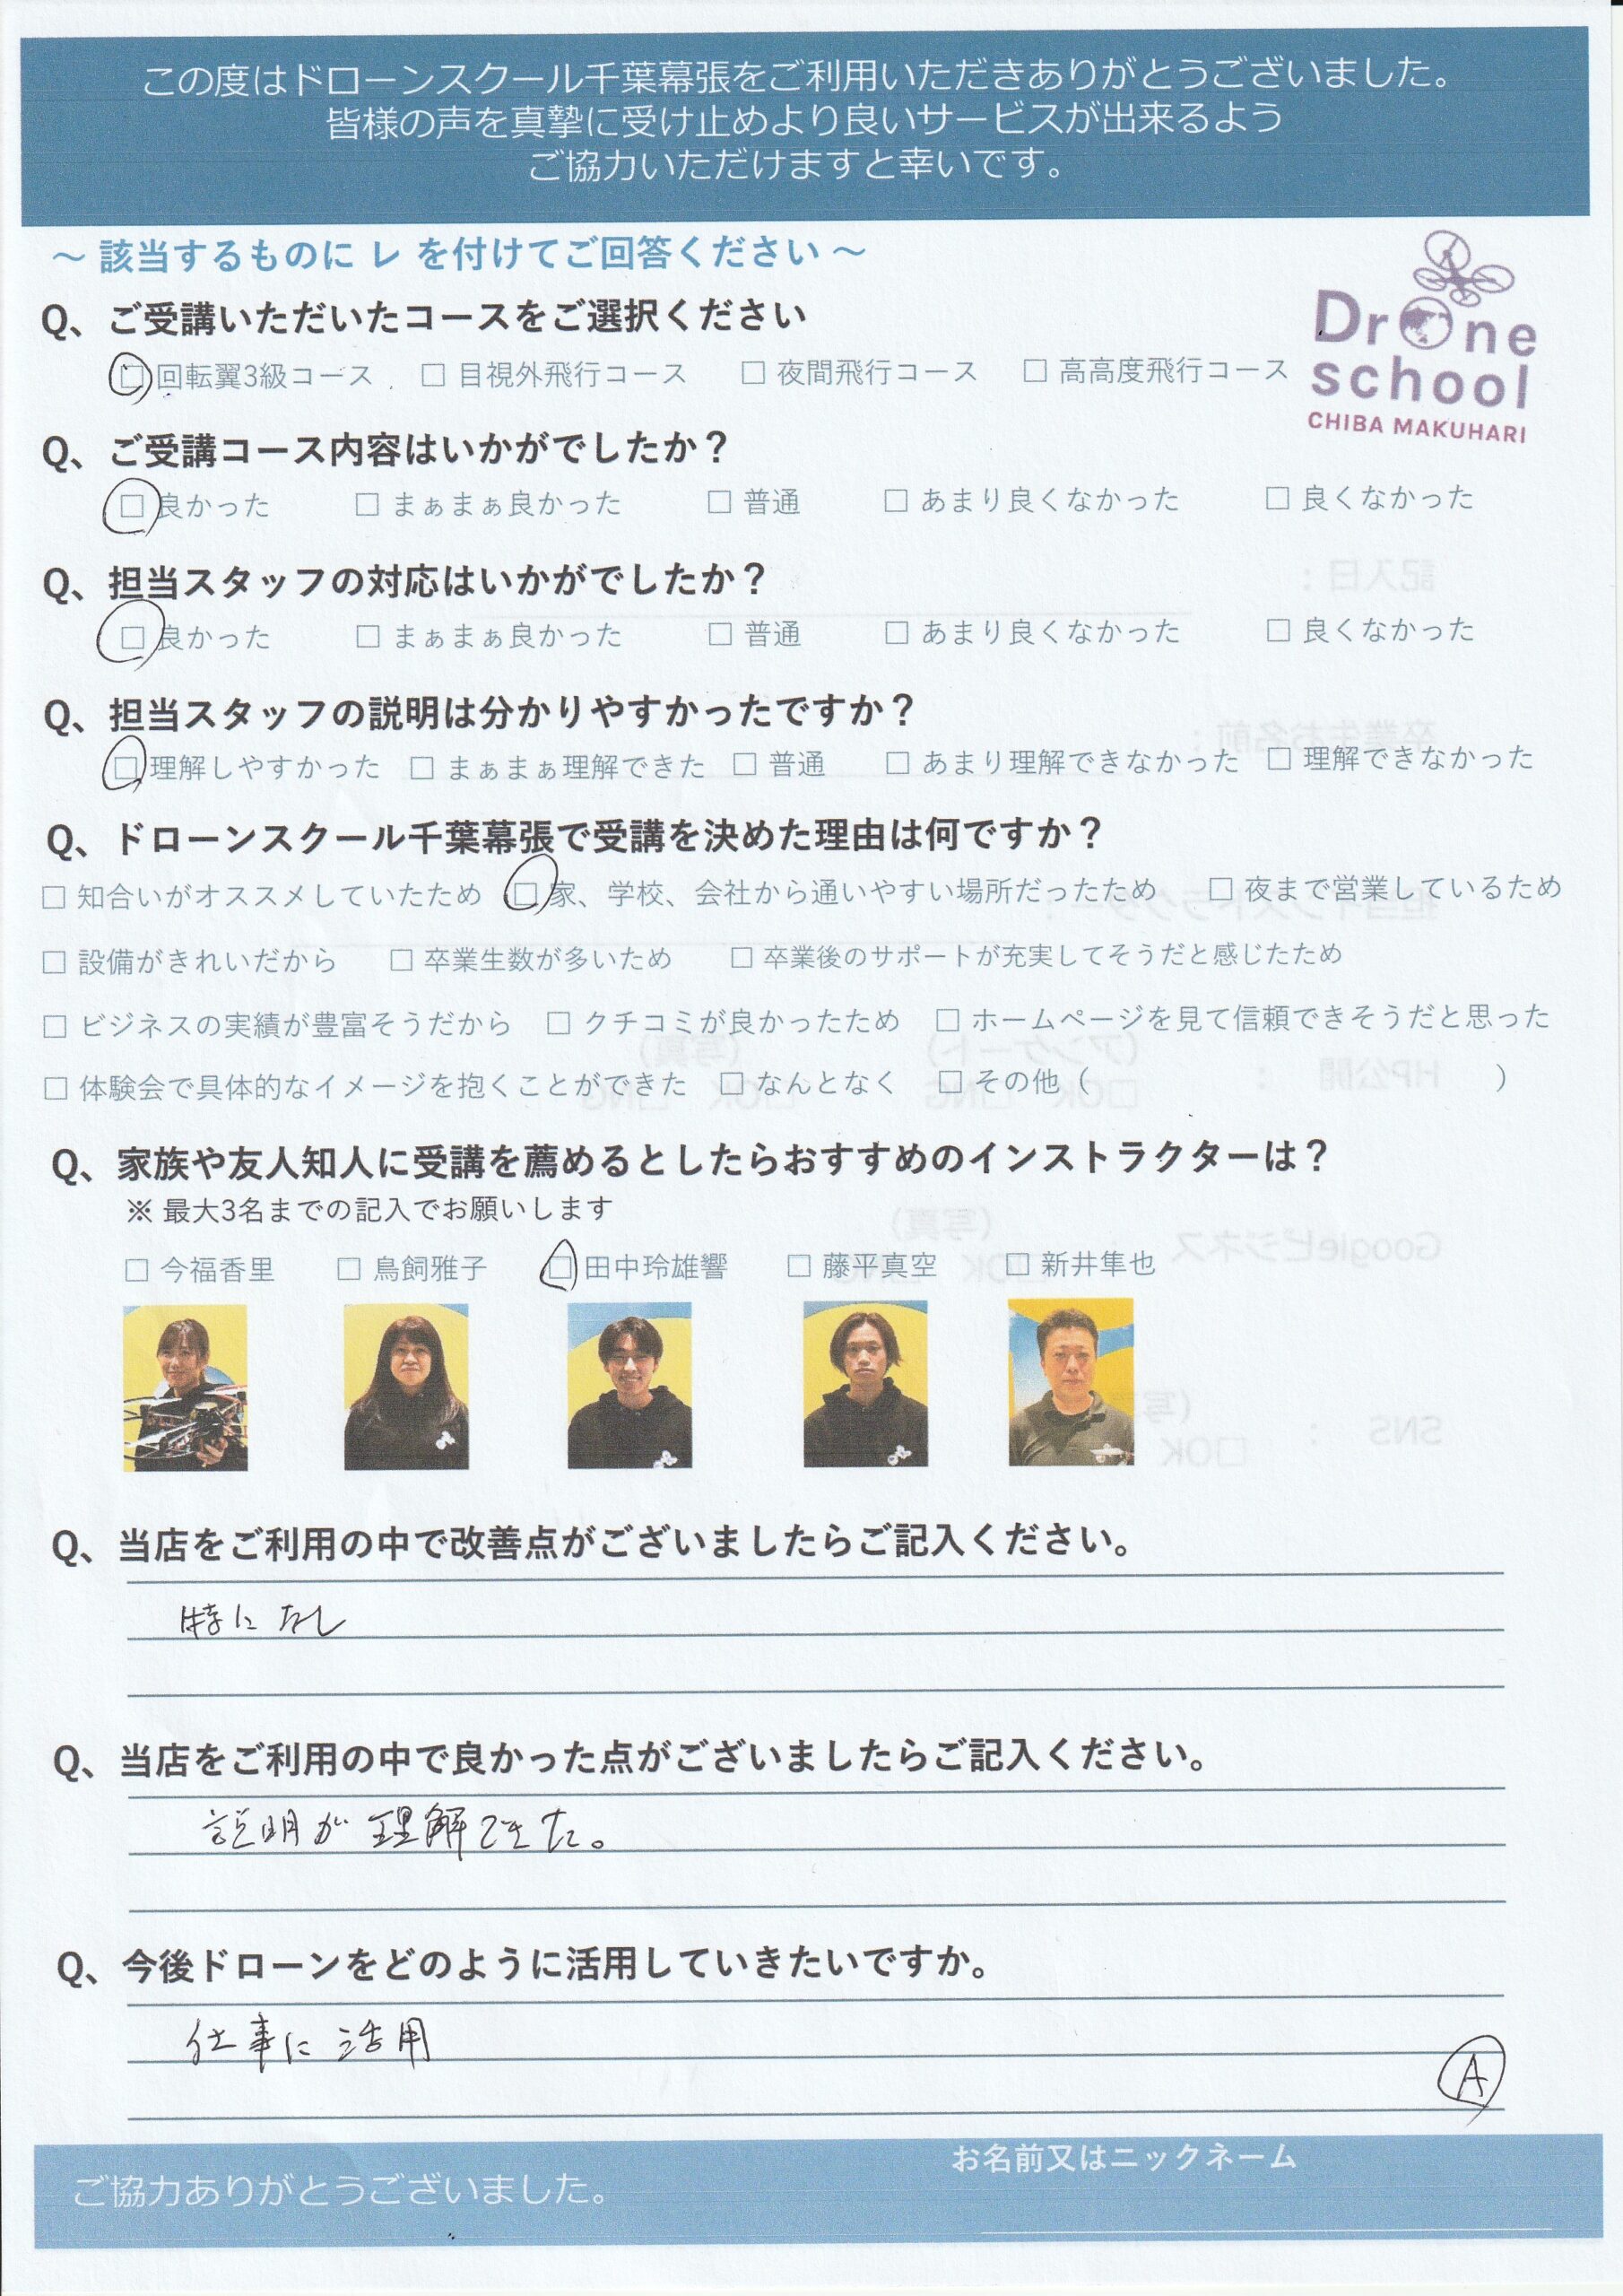 この度はドローンスクール千葉幕張をご利用いただきありがとうございました。
皆様の声を真摯に受け止めより良いサービスが出来るよう
ご協力いただけますと幸いです。
～ 該当するものに レ を付けてご回答ください ～
Drone
school
CHIBA MAKUHARI
Q、ご受講いただいたコースをご選択ください
□ 回転翼3級コース □ 目視外飛行コース □ 夜間飛行コース □ 高高度飛行コース
Q、ご受講コース内容はいかがでしたか？
□ 良かった □ まぁまぁ良かった □ 普通 □ あまり良くなかった □ 良くなかった
記入日：
Q、担当スタッフの対応はいかがでしたか？
□ 良かった □ まぁまぁ良かった □ 普通 □ あまり良くなかった □ 良くなかった
Q、担当スタッフの説明は分かりやすかったですか？
卒業生お名前：
□ 理解しやすかった □ まぁまぁ理解できた □ 普通 □ あまり理解できなかった □ 理解できなかった
Q、ドローンスクール千葉幕張で受講を決めた理由は何ですか？
□ 知合いがオススメしていたため □ 家、学校、会社から通いやすい場所だったため □ 夜まで営業しているため
担当インストラクター：
□ 設備がきれいだから □ 卒業生数が多いため □ 卒業後のサポートが充実してそうだと感じたため
□ ビジネスの実績が豊富そうだから □ クチコミが良かったため □ ホームページを見て信頼できそうだと思った
HP公開 ： （アンケート） （写真）
□OK □NG □OK □NG
□ 体験会で具体的なイメージを抱くことができた □ なんとなく □ その他（ ）
Q、家族や友人知人に受講を薦めるとしたらおすすめのインストラクターは？
※ 最大3名までの記入でお願いします
Googleビジネス （写真）
□ 今福香里 □ 鳥飼雅子 □ 田中玲雄響 □ 藤平真空 □ 新井隼也
SNS ：
□OK
Q、当店をご利用の中で改善点がございましたらご記入ください。
特になし
Q、当店をご利用の中で良かった点がございましたらご記入ください。
説明が理解できた。
Q、今後ドローンをどのように活用していきたいですか。
仕事に活用
A
お名前又はニックネーム
ご協力ありがとうございました。